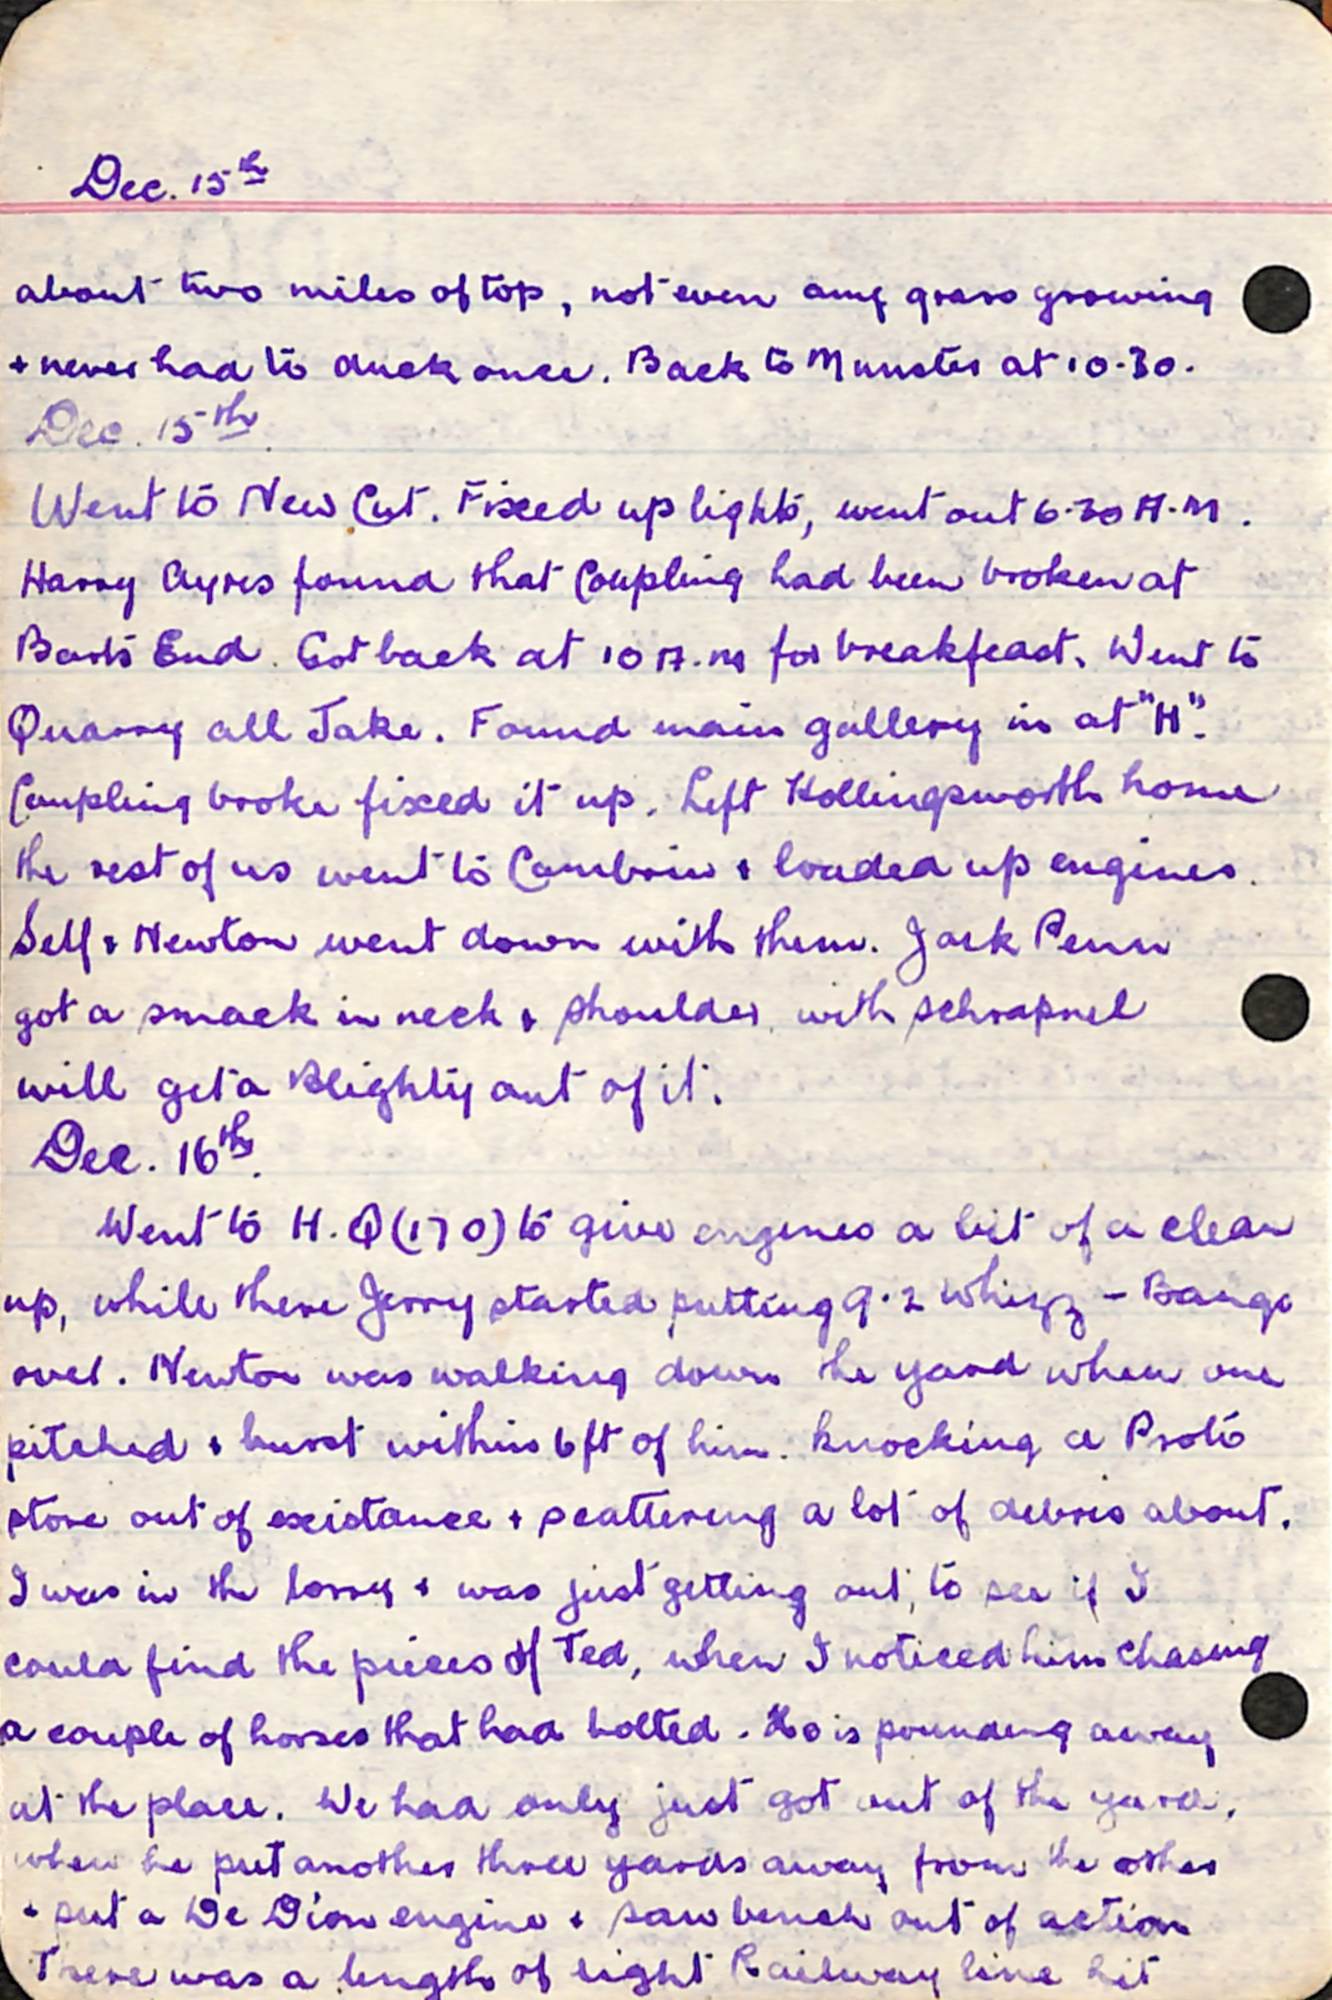 Dec. 15th
about two miles of top, not even any grass growing
+ never had to duck once. Back to Munster at 10-30.
Dec. 15th
Went to New Cut. Fixed up lights, went out 6-30 A.M.
Harry Ayres found that Coupling had been broken at
Barts End. Got back at 10 A.M for breakfeast. Went to
Quarry all Jake. Found main gallery in at "H".
Coupling broke fixed it up. Left Hollingsworth home
the rest of us went to Cambrin + loaded up engines.
Self + Newton went down with them. Jack Penn
got a smack in neck + shoulder with schrapnel
will get a Blighty out of it.
Dec. 16th.
Went to H.Q (170) to give engines a bit of a clean
up, while there Jerry started putting 9.2 Whizz - Bangs
over. Newton was walking down the yard when one
pitched + burst within 6ft of him. knocking a Proto
store out of existance + scattering a lot of debris about.
I was in the lorry + was just getting out, to see if I
could find the pieces of Ted, when I noticed him chasing
a couple of horses that had bolted. He is pounding away
at the place. We had only just got out of the yard,
when he put another three yards away from the other
+ put a De Dion engine + saw bench out of action
There was a length of light Railway line hit